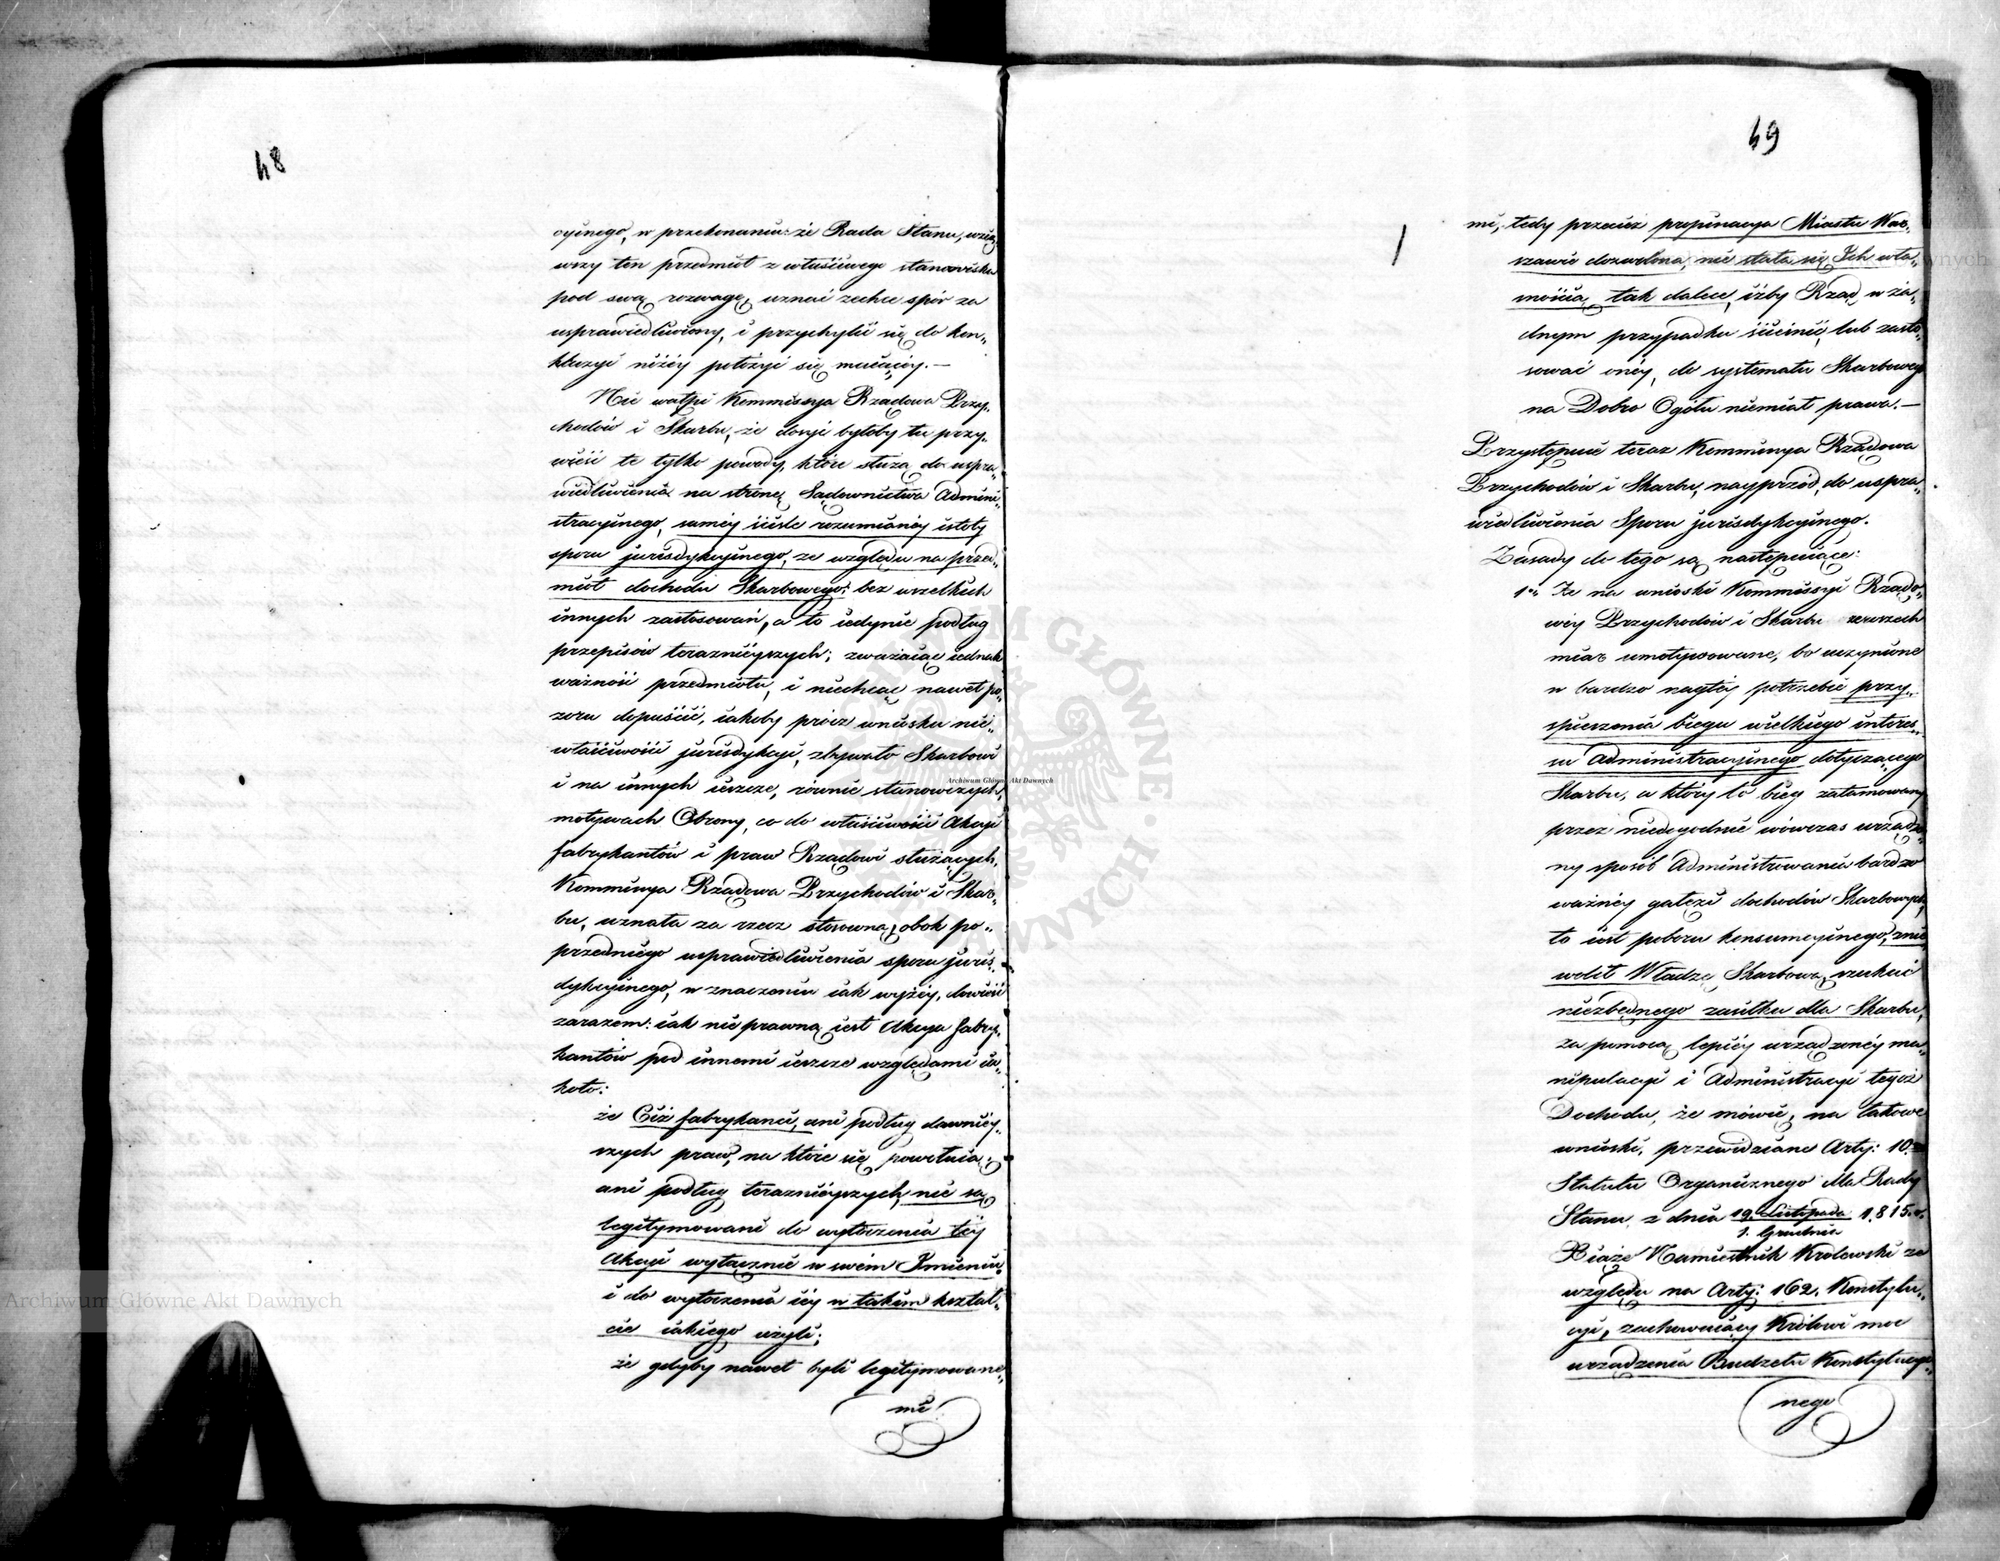 48
cyinego, w przekonaniu: że Rada Stanu, wziąw-
wszy ten przedmiot z właściwego stanowiska
pod swą rozwagę, uznać zechce spór za
usprawiedliwiony, i przychylić się do kon„
kluzyi niżéy położyć się maiącéy.—
Nie wątpi Kommissya Rządowa Przy„
chodów i Skarbu, że dosyć byłoby tu przy„
wieść te tylko powody, które służą do uspra„
wiedliwienia na stronę Sądownictwa Admini„
stracyinego, saméy ściśle rozumianéy istoty
sporu jurisdykcyinego, ze względu na przed„
miot dochodu Skarbowego; bez wszelkich
innych zastosowań, a to iedynie podług
przepisów teraznieyszych; zważaiąc iednak
ważność przedmiotu, i niechcąc nawet po„
zoru dopuścić, iakoby prócz wniosku nie„
właściwości jurisdykcyi, zbywało Skarbowi
i na innych ieszcze, równie stanowczych,
motywach Obrony, co do właściwości Akcyi
fabrykantów i praw Rządowi służących,
Kommissya Rządowa Przychodów i Skar„
bu, uznała za rzecz stosowną, obok po„
przedniego usprawiedliwienia sporu juris„
dykcyinego, w znaczeniu iak wyżéy, dowieść
zarazem: iak nie prawną iest Akcya fabry„
kantów pod innemi ieszcze względami ia„
koto:
że Ciż fabrykanci, ani podług dawniéy„
szych praw, na które się powołuią,
ani podług teraznieyszych, nie są
legitymowani do wytoczenia téy
Akcyi wyłącznie w swém Imieniu,
i do wytoczenia iéy w takim kształ„
cie iakiego użyli;
że gdyby nawet byli legitymowane„
mi
49
mi, tedy przecież propinacya Miastu War„
szawie dozwolona, nie stała się Ich wła„
snością tak dalece, iżby Rząd w ża„
dnym przypadku ścieśnić, lub zasto„
sować onéy, do systematu Skarbowego
na Dobro Ogółu niemiał prawa.—
Przystępuie teraz Kommissya Rządowa
Przychodów i Skarbu, nayprzód, do uspra„
wiedliwienia Sporu jurisdykcyinego.
Zasady do tego są następuiące:
1o Ze na wnioski Kommissyi Rządo„
wéy Przychodów i Skarbu zewszech
miar umotywowane, bo uczynione
w bardzo nagłéy potrzebie przy„
spieszenia biegu wielkiego interes„
su Administracyinego dotyczącego
Skarbu, a który to bieg zatamowany
przez niedogodnie wówczas urządzo„
ny sposób Administrowania bardzo
ważnéy gałęzi dochodów Skarbowych,
to iest poboru konsumcyinego, znie„
wolił Władzę Skarbową, szukać
niezbędnego zasiłku dla Skarbu,
za pomocą lepiéy urządzonéy ma„
nipulacyi i Administracyi tegoż
Dochodu, że mówię, na takowe
wnioski, przewidziane Arty: 10.
Statutu Organicznego dla Rady
Stanu z dnia 19. Listopada 1815. r.
1. Grudnia
Xiąże Namiestnik Królewski ze
względu na Arty: 162. Konstytu„
cyi, zachowuiący Królowi moc
urządzenia Budżetu Konstytucyi„
nego
Archiwum Główne Akt Dawnych
Archiwum Główne Akt Dawnych